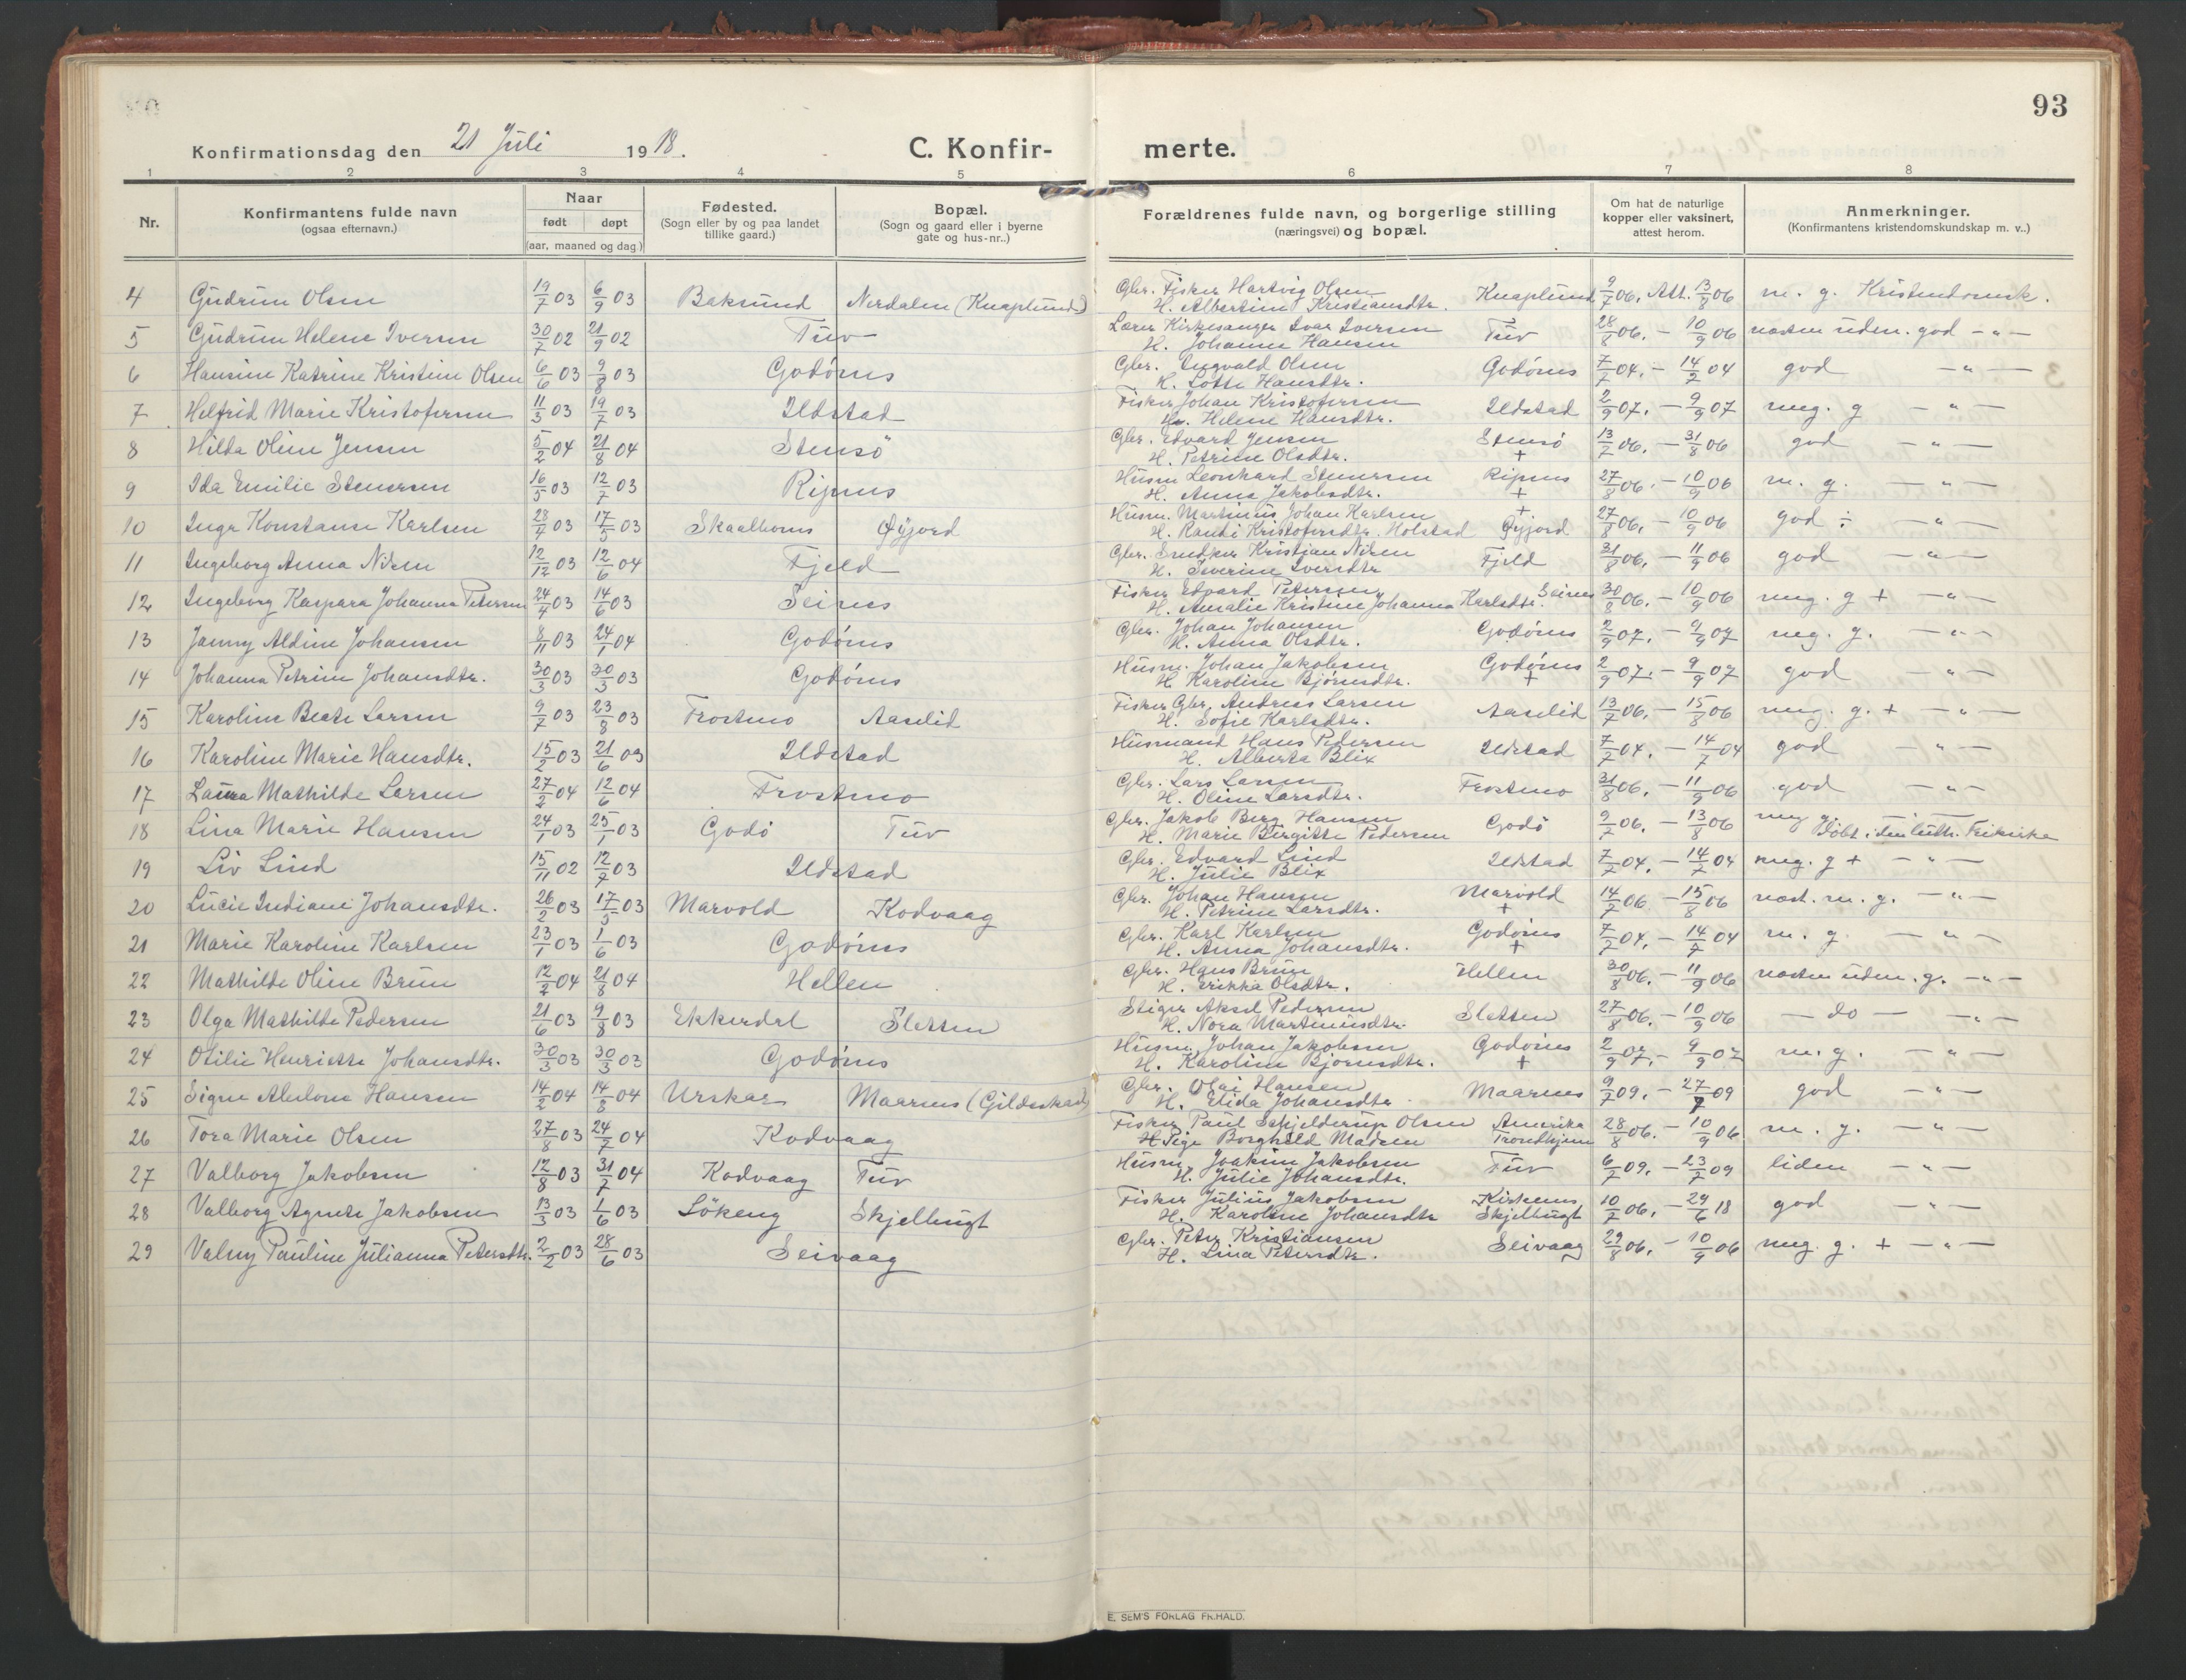 93
Konfirmationsdag den 21 Juli 1918. C. Konfir- merte.
1 2 3 4 5 6 7 8
Nr. Konfirmantens fulde navn (ogsaa efternavn.) Naar født døpt (aar, maaned og dag) Fødested. (Sogn eller by og paa landet tillike gaard.) Bopæl. (Sogn og gaard eller i byerne gate og hus-nr..) Forældrenes fulde navn, og borgerlige stilling (næringsvei) og bopæl. Om hat de naturlige kopper eller vaksinert, attest herom. Anmerkninger. (Konfirmantens kristendomskundskap m. v..)
4 Gudrun Olsen 19/7 03 6/9 03 Baksund Nerdalen (Knaplund) Gbr. Fisker Hartvig Olsen Knaplund 9/7 06. Att. 13/8 06 m. g. Kristendomsk.
H. Albertine Kristiansdtr.
5 Gudrun Helene Iversen 30/7 02 21/9 02 Tuv Lærer Kirkesanger Ivar Iversen Tuv 28/8 06. — 10/9 06 næsten uden. god — " —
H. Johanne Hansen
6 Hansine Katrine Kristine Olsen 6/6 03 9/8 03 Godönes Gbr. Ingvald Olsen Godönes 7/7 04. — 14/7 04 god — " —
H. Lotte Hansdtr.
7 Helfrid Marie Kristofersen 11/3 03 19/7 03 Ildstad Fisker Johan Kristofersen Ildstad 2/9 07. — 9/9 07 meg. g — " —
H. Helene Hansdtr.
8 Hilda Oline Jensen 5/2 04 21/8 04 Stensö Gbr. Edvard Jensen Stensö 13/7 06. — 31/8 06 god — " —
H. Petrine Olsdtr. +
9 Ida Emilie Stenersen 16/5 03 12/7 03 Ripnes Husm. Leonhard Stenersen Ripnes 27/8 06. — 10/9 06 m. g. — " —
H. Anna Jakobsdtr. +
10 Inga Konstanse Karlsen 28/4 03 17/5 03 Skaalbones Øyjord Husm. Martinus Johan Karlsen + 27/8 06. — 10/9 06 god ÷ — " —
H. Randi Kristofersdtr. Holstad Øyjord
11 Ingeborg Anna Nilsen 12/12 03 12/6 04 Fjeld Gbr. Snedker Kristian Nilsen Fjeld 31/8 06. — 11/9 06 god — " —
H. Severine Iversdtr
12 Ingeborg Kaspara Johanna Petersen 24/4 03 14/6 03 Seines Fisker Edvard Petersen Seines 30/8 06. — 10/9 06 meg. g + — " —
H. Amalie Kristine Johanna Karlsdtr.
13 Janny Aldine Johansen 8/11 03 24/1 04 Godönes Gbr. Johan Johansen Godönes 2/9 07. — 9/9 07 meg. g. — " —
H. Anna Olsdtr.
14 Johanna Petrine Johansdtr. 30/3 03 30/3 03 Godönes Husm. Johan Jakobsen Godönes 2/9 07. — 9/9 07 god — " —
H. Karoline Bjørnsdtr. +
15 Karoline Beate Larsen 9/7 03 23/8 03 Frostmo Aaselid Fisker Gbr. Andreas Larsen Aaselid 13/7 06. — 15/8 06 meg. g. + — " —
H. Sofie Karlsdtr.
16 Karoline Marie Hansdtr. 15/2 03 21/6 03 Ildstad Husmand Hans Pedersen Ildstad 7/7 04. — 14/7 04 god — " —
H. Alberta Blix
17 Laura Mathilde Larsen 27/2 04 12/6 04 Frostmo Gbr. Lars Larsen Frostmo 31/8 06. — 11/9 06 god — " —
H. Oline Larsdtr.
18 Lina Marie Hansen 24/1 03 25/1 03 Godö Tuv Gbr. Jakob Berg Hansen Godö 9/7 06. — 13/8 06 meg g. — " —
H. Marie Birgitte Pedersen Döbt i den luth. Frikirke
19 Liv Lind 15/11 02 12/7 03 Ildstad Gbr. Edvard Lind Ildstad 7/7 04. — 14/7 04 meg. g + — " —
H. Julie Blix
20 Lucie Indiane Johansdtr. 26/2 03 17/5 03 Marvold Kodvaag Gbr. Johan Hansen Marvold 14/7 06 — 15/8 06 næst. m. g. — " —
H. Petrine Larsdtr. +
21 Marie Karoline Karlsen 23/1 03 1/6 03 Godönes Gbr. Karl Karlsen Godönes 7/7 04. — 14/7 04 m. g. — " —
H. Anna Johansdtr. +
22 Mathilde Oline Brun 12/2 04 21/8 04 Hellen Gbr. Hans Brun Hellen 30/8 06. — 11/9 06 næsten uden. g. — " —
H. Erikka Olsdtr.
23 Olga Mathilde Pedersen 21/6 03 9/8 03 Ekkerdal Sletten Stiger Aksel Pedersen Sletten 27/8 06. — 10/9 06 — do — — " —
H. Nora Martinusdtr.
24 Otilie Henriette Johansdtr. 30/3 03 30/3 03 Godönes Husm. Johan Jakobsen Godönes 2/9 07. — 9/9 07 m. g. — " —
H. Karoline Bjørnsdtr. +
25 Signe Abelone Hansen 14/2 04 14/8 04 Urskar Maarnes (Gildeskaal) Gbr. Olai Hansen Maarnes 9/7 09. — 27/7 09 god — " —
H. Elida Johansdtr
26 Tora Marie Olsen 27/8 03 24/7 04 Kodvaag Fisker Paul Schjelderup Olsen Amerika 28/8 06. — 10/9 06 m. g. — " —
H. Borghild Madsen Trondhjem
27 Valborg Jakobsen 12/8 03 31/7 04 Kodvaag Tuv Husm. Joakim Jakobsen Tuv 6/7 09. — 23/7 09 liden — " —
H. Julie Johansdtr.
28 Valborg Agnete Jakobsen 13/3 03 1/6 03 Lökeng Skjelbugt Fisker Julius Jakobsen Kirkenes 10/7 06. — 24/6 18 god — " —
H. Karoline Johansdtr Skjelbugt
29 Valny Pauline Julianna Petersdtr. 2/2 03 28/6 03 Seivaag Gbr. Peter Kristiansen Seivaag 29/8 06. — 10/9 06 meg. g. + — " —
H. Lina Petersdtr.
E. SEM'S FORLAG FR.HALD.